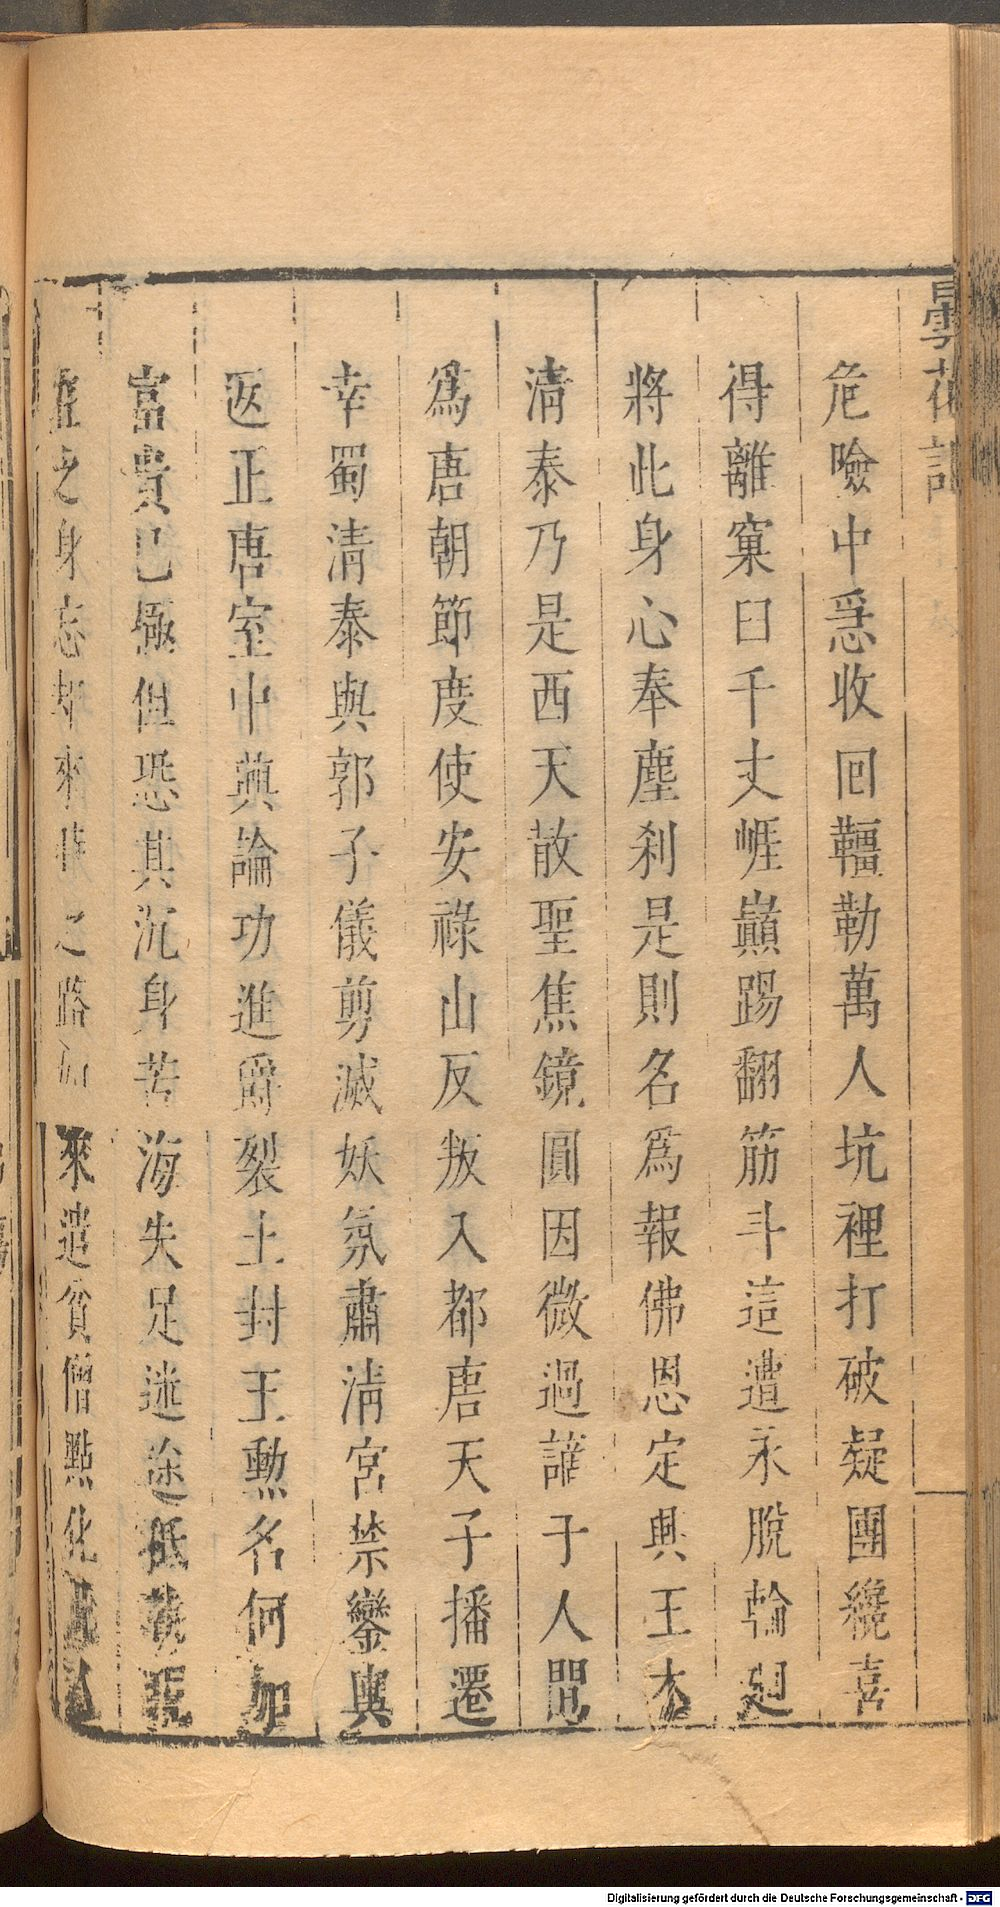 曇花記
危險中惡收回韁勒萬人坑裡打破疑團纔喜
得離窠臼千丈崕巔踢翻筋斗這遭永脫輪廻
將此身心奉塵刹是則名爲報佛恩定興王木
清泰乃是西天散聖焦鏡圓因微過謫于人間
爲唐朝節度使安祿山反叛入都唐天子播遷
幸蜀清泰與郭子儀剪滅妖氛肅清宮禁鑾輿
返正唐室中興論功進爵裂土封王勳名何加
富貴已極但恐其沉身苦海失足迷途
之身忘却來時之路如來遣貧僧點化
Digitalisierung gefördert durch die Deutsche Forschungsgemeinschaft - DFG